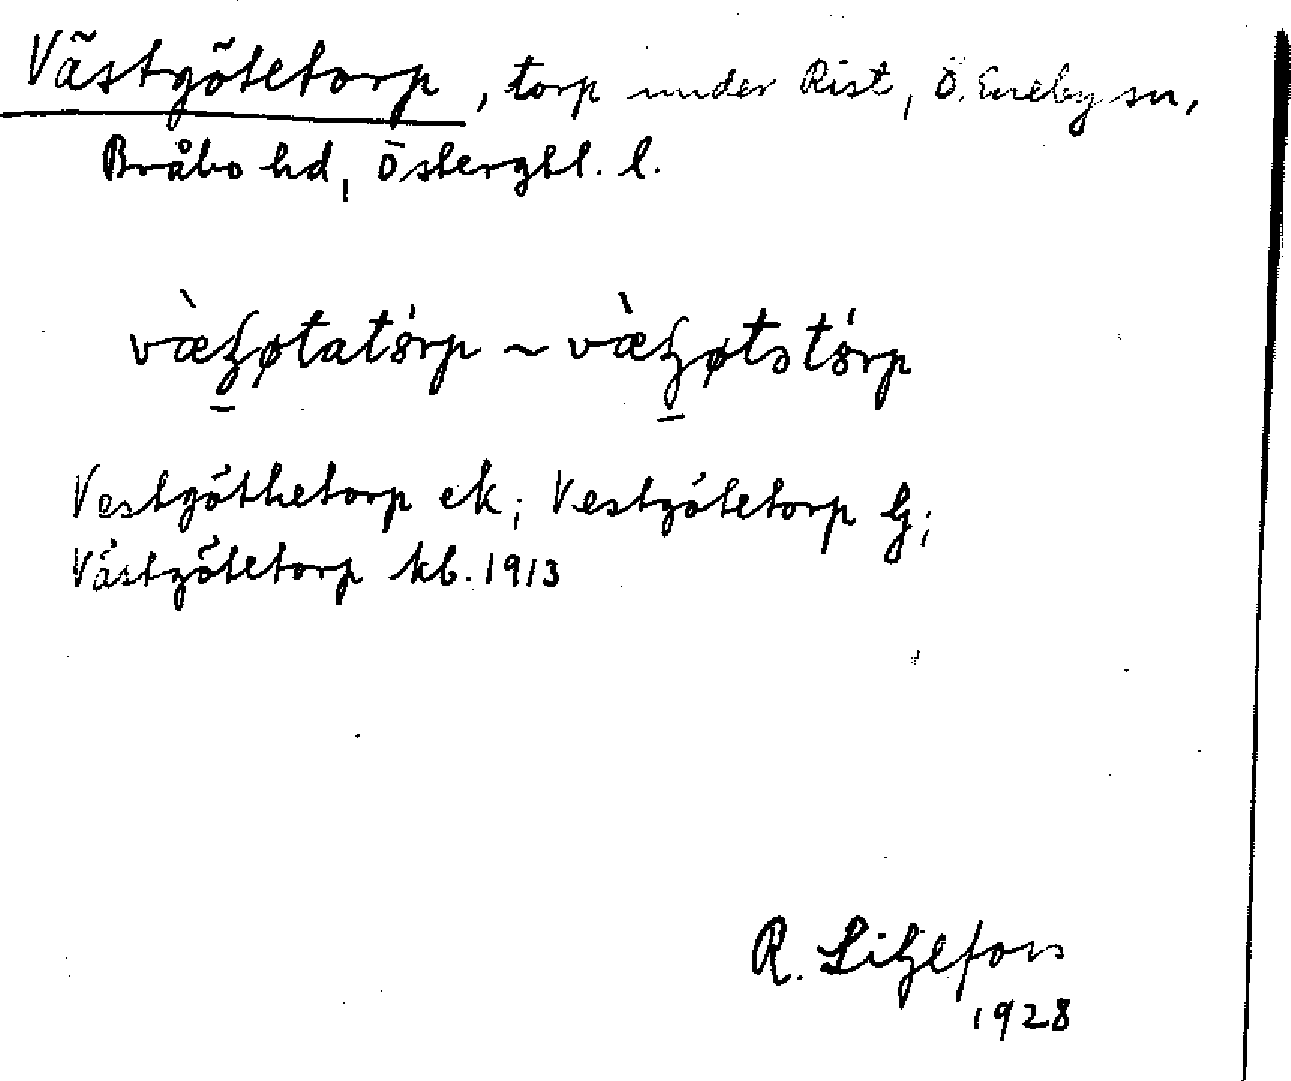 Västgötetorp, torp under Rist, Ö. Eneby sn,
Bråbo hd, Östergtl. l.
Vestgöthetorp ek; Vestgötetorp G;
Västgötetorp kb. 1913
R. Liljefors
1928